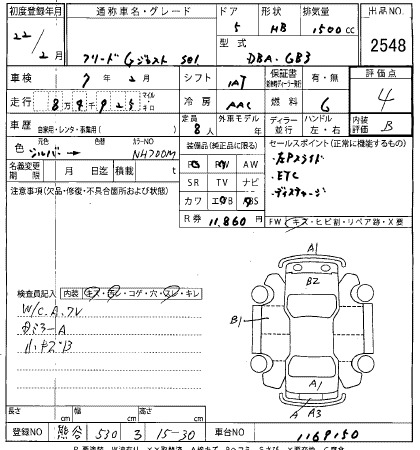 初度登録年月 通称車名・グレード ドア 形状 排気量 出品NO
22/2月 フリード Gジャスト sel 5 HB 1500cc 2548
型式 DBA-GB3
車検 7年2月 シフト IAT 保証書 有・無 評価点 4
走行 8 マイル キロ 冷房 AAC 燃料 G
車歴 自家用・レンタ・事業用( ) 定員 8人 外車モデル 年 ディーラー 並行 ハンドル 左・右 内装評価 B
色 元色 シルバー 色替 カラーNO NH700M 装備品(純正品に限る) セールスポイント(正常に機能するもの)
名義変更期限 月 日迄 積載 t PS PW AW ・左Pスライド
SR TV ナビ ・ETC
注意事項(欠品・修復・不具合箇所および状態) カワ エアB ABS ・ディスチャージ
R券 11,860円 FW(キズ・ヒビ割・リペア跡・X要)
検査員記入 内装(キズ・汚レ・コゲ・穴・スレ・キレ)
W/C.A.フレ
小キズB
A1
B2
B1
A1
A A3
長さ cm 幅 cm 高さ cm
登録NO 熊谷 530 ろ 15-30 車台NO 1169150